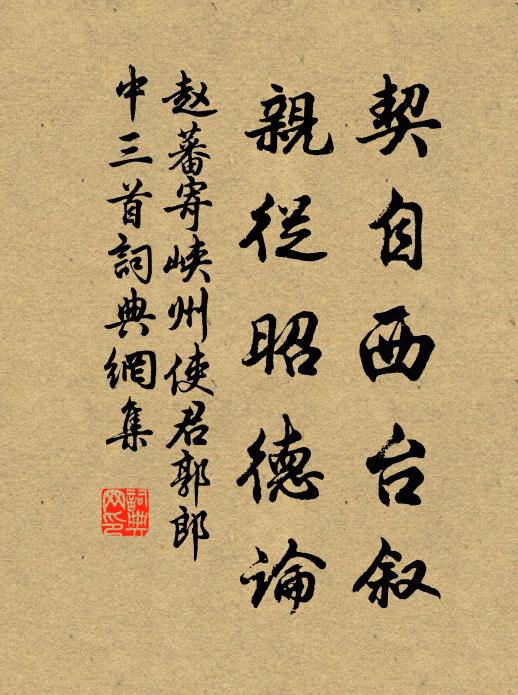 契自西台叙
親從昭德論
赵蕃寄峡州使君郭郎
中三首詞典網集
詞典
网印